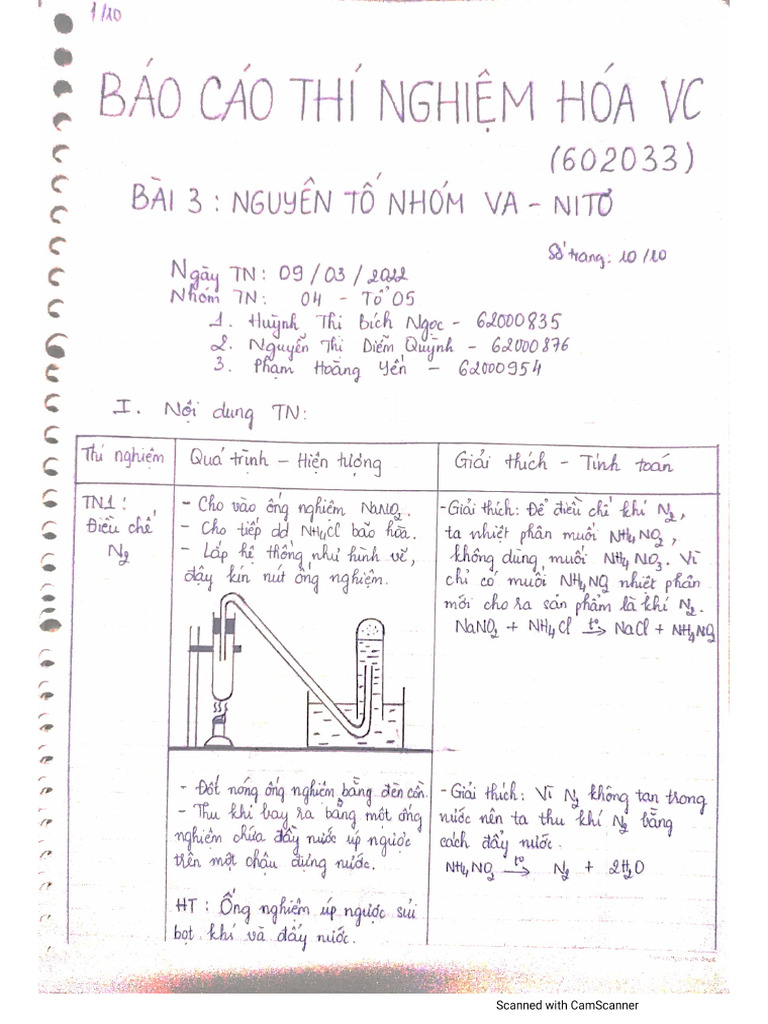 1/10
BÁO CÁO THÍ NGHIỆM HÓA VC
(602033)
BÀI 3 : NGUYÊN TỐ NHÓM VA - NITƠ
Số trang: 10/10
Ngày TN: 09/03/2022
Nhóm TN: 04 - Tổ 05
1. Huỳnh Thi Bích Ngọc - 62000835
2. Nguyễn Thi Diễm Quỳnh - 62000876
3. Phạm Hoàng Yến - 62000954
I. Nội dung TN:
Thí nghiệm
Quá trình - Hiện tượng
Giải thích - Tính toán
TN1:
Điều chế
N₂
- Cho vào ống nghiệm NaNO₂.
- Cho tiếp dd NH₄Cl bão hòa.
- Lắp hệ thống như hình vẽ,
đậy kín nút ống nghiệm.
- Giải thích: Để điều chế khí N₂,
ta nhiệt phân muối NH₄NO₂,
không dùng muối NH₄NO₃. Vì
chỉ có muối NH₄NO₂ nhiệt phân
mới cho ra sản phẩm là khí N₂.
NaNO₂ + NH₄Cl t° → NaCl + NH₄NO₂
- Đốt nóng ống nghiệm bằng đèn cồn.
- Thu khí bay ra bằng một ống
nghiệm chứa đầy nước úp ngược
trên một chậu đựng nước.
HT: Ống nghiệm úp ngược sủi
bọt khí và đẩy nước.
- Giải thích: Vì N₂ không tan trong
nước nên ta thu khí N₂ bằng
cách đẩy nước.
NH₄NO₂ t° → N₂ + 2H₂O
Scanned with CamScanner